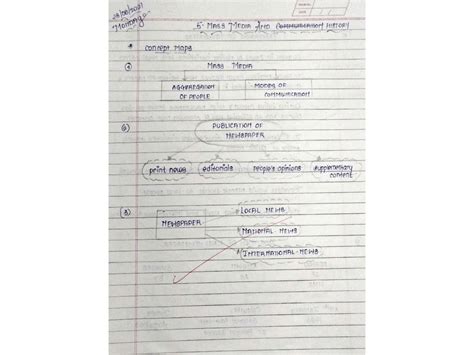 5. MASS MEDIA AND COMMUNICATION HISTORY
Monday
* CONCEPT MAPS
MASS MEDIA
AGGREGATION OF PEOPLE
MODES OF COMMUNICATION
PUBLICATION OF NEWSPAPER
print news
editorials
people's opinions
supplementary content
(3)
NEWSPAPER
LOCAL NEWS
NATIONAL NEWS
INTERNATIONAL NEWS